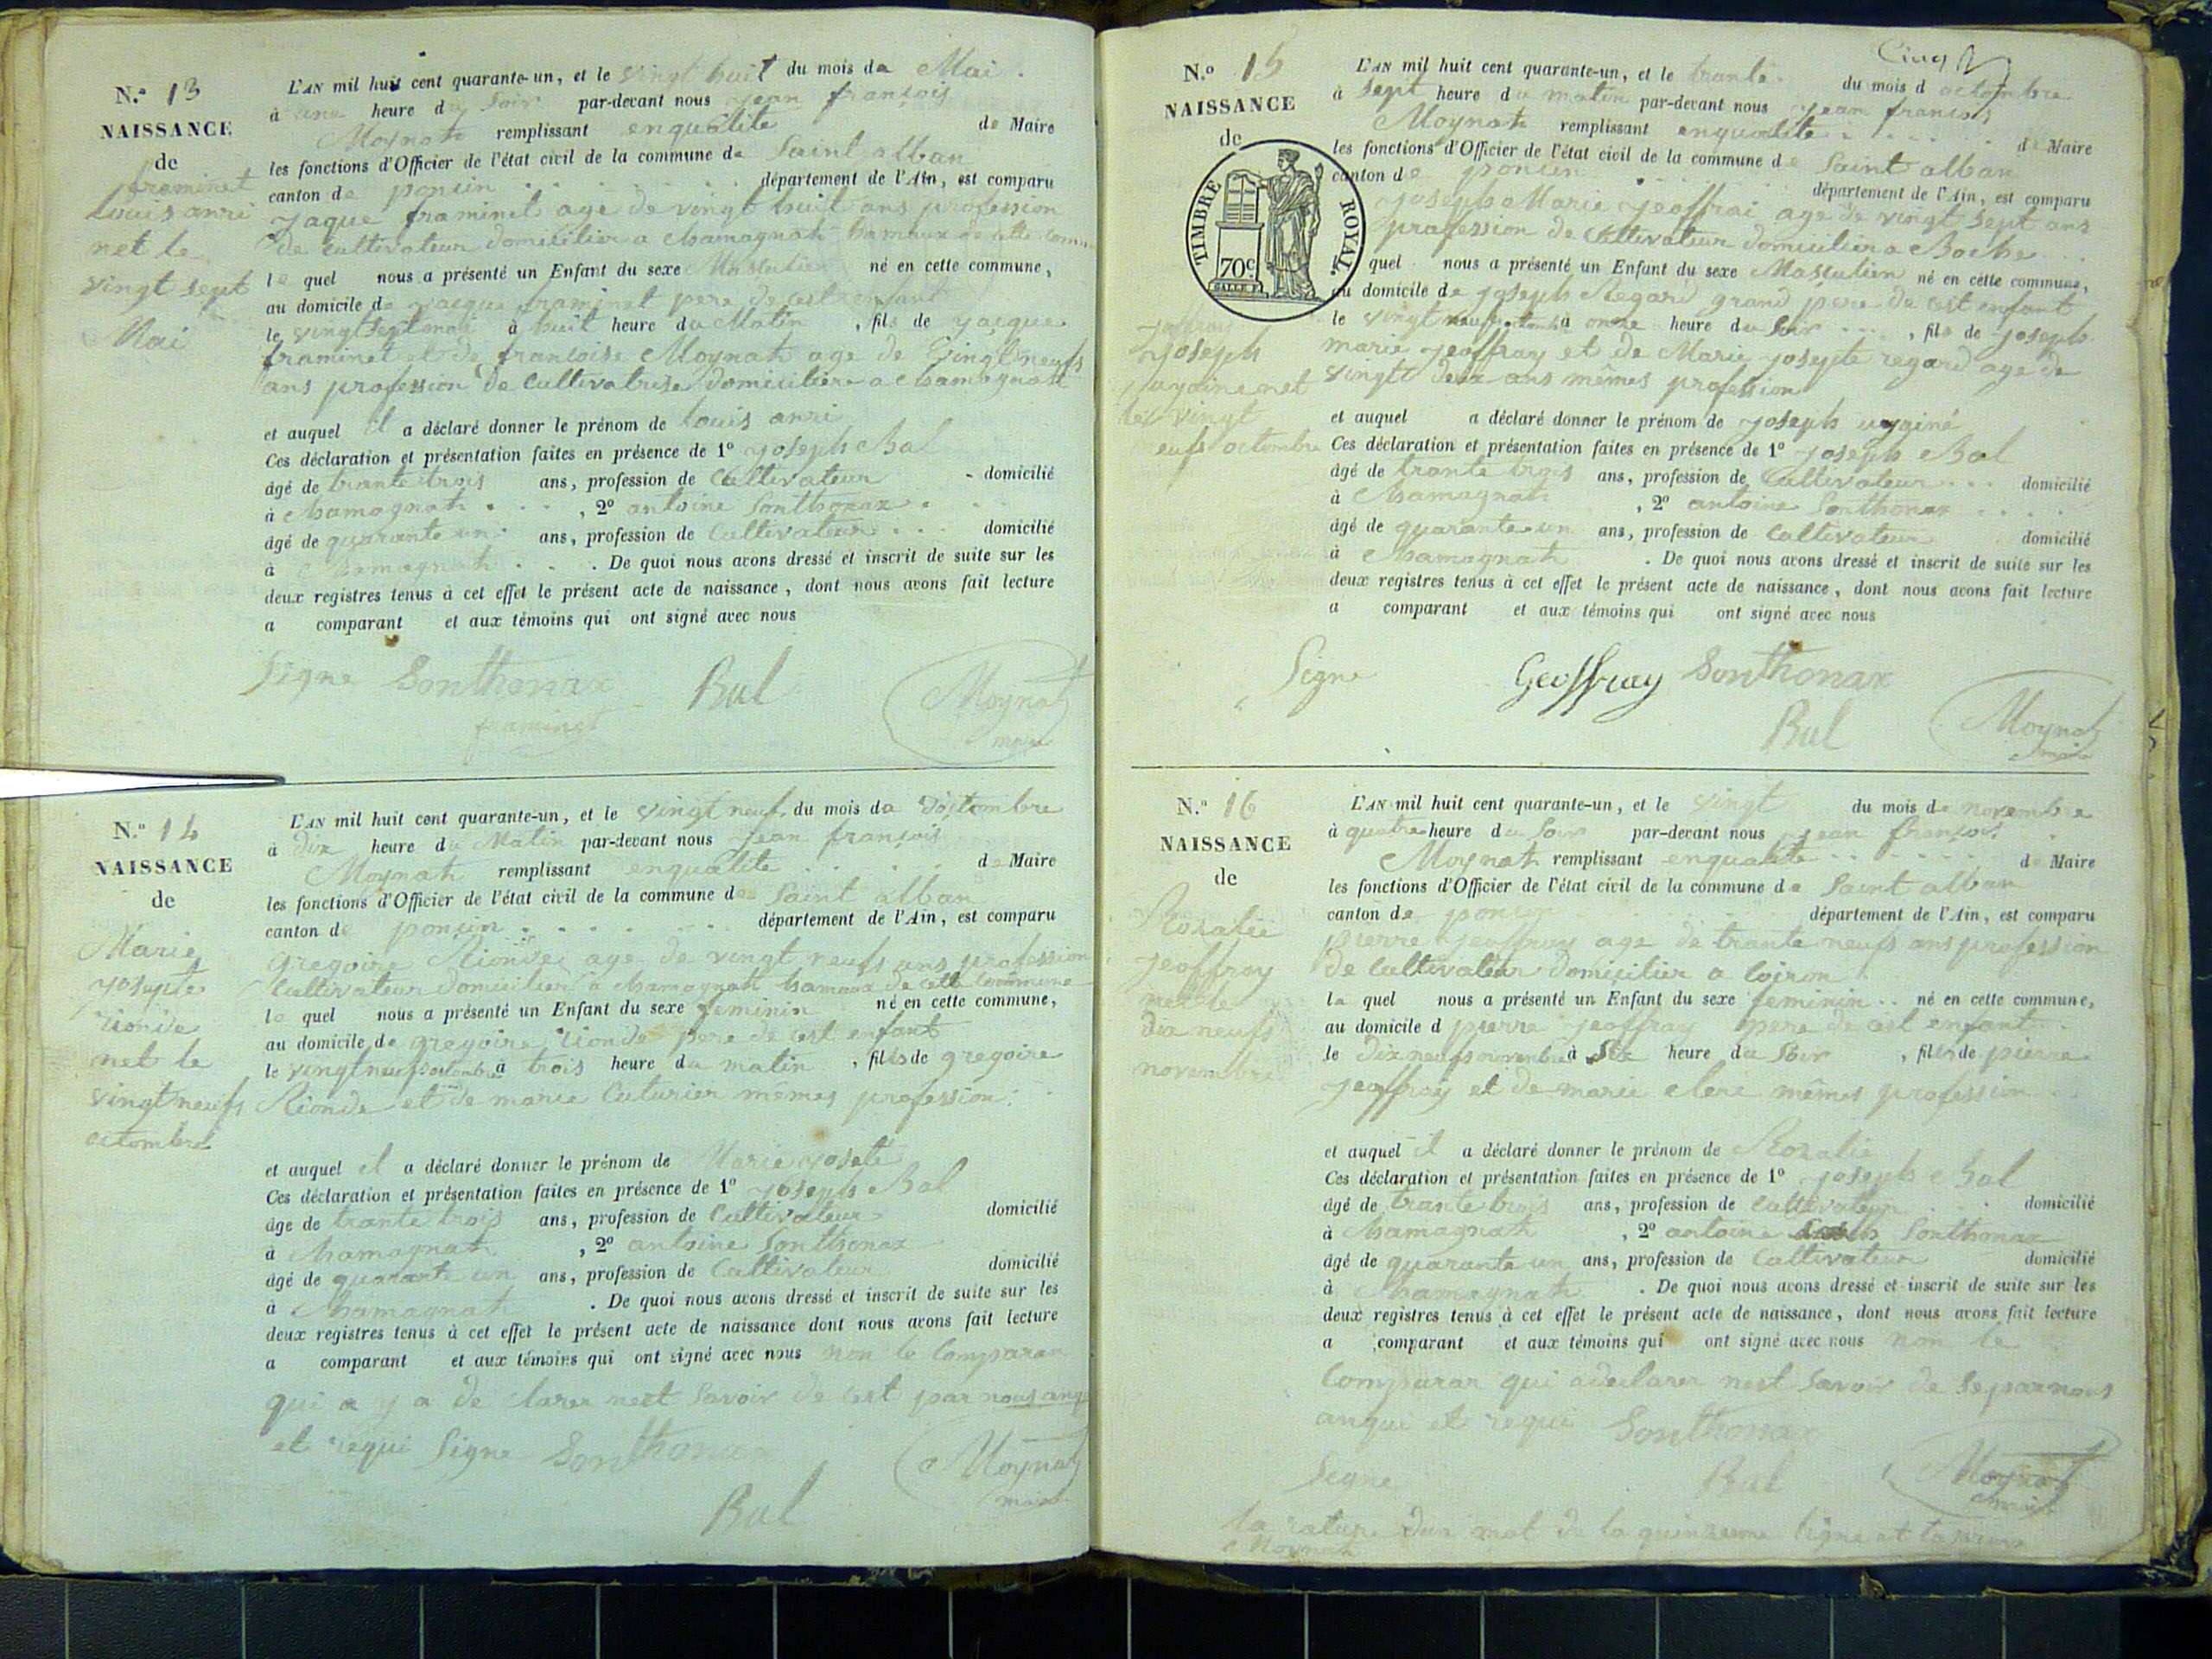 N.º 13
NAISSANCE
de
framinet
Louis anri
net le
vingt sept
Mai
L'AN mil huit cent quarante-un, et le vingt huit du mois de Mai.
à une heure du Soir par-devant nous jean françois
Moynat remplissant enqualite de Maire
les fonctions d'Officier de l'état civil de la commune de Saint alban
canton de poncin département de l'Ain, est comparu
jaque framinet age de vingt huit ans profession
de Cultivateur domicilier a chamagnat hamaux de cette
le quel nous a présenté un Enfant du sexe Masculien né en cette commune,
au domicile de jacque framinet pere de cest enfant
le vingt sept mai à huit heure du Matin, fils de jacque
framinet et de françoise Moynat age de Vingt neufs
ans profession de Cultivatrise domicilier a chamagnat
et auquel il a déclaré donner le prénom de Louis anri
Ces déclaration et présentation faites en présence de 1º joseph Bal
âgé de trante trois ans, profession de Cultivateur domicilié
à chamagnat, 2º antoine Sonthonax
âgé de quarante un ans, profession de Cultivateur domicilié
à chamagnat. De quoi nous avons dressé et inscrit de suite sur les
deux registres tenus à cet effet le présent acte de naissance, dont nous avons fait lecture
a comparant et aux témoins qui ont signé avec nous
Signe Sonthonax Bal Moynat
framinet maire
N.º 14
NAISSANCE
de
Marie
josepte
rionde
net le
vingt neufs
octombre
L'AN mil huit cent quarante-un, et le vingt neuf du mois de octombre
à dix heure du Matin par-devant nous jean françois
Moynat remplissant enqualite de Maire
les fonctions d'Officier de l'état civil de la commune de Saint alban
canton de poncin département de l'Ain, est comparu
gregoire Rionde age de vingt neufs ans profession
Cultivateur domicilier a chamagnat hamaux de cette Commune
le quel nous a présenté un Enfant du sexe feminin né en cette commune,
au domicile de gregoire rionde pere de cest enfant
le vingt neufs octombre à trois heure du matin, filles de gregoire
Rionde et de marie Cuturier mêmes profession
et auquel il a déclaré donner le prénom de Marie josete
Ces déclaration et présentation faites en présence de 1º joseph Bal
âgé de trante trois ans, profession de Cultivateur domicilié
à chamagnat, 2º antoine Sonthonax
âgé de quarante un ans, profession de Cultivateur domicilié
à chamagnat. De quoi nous avons dressé et inscrit de suite sur les
deux registres tenus à cet effet le présent acte de naissance dont nous avons fait lecture
a comparant et aux témoins qui ont signé avec nous non le Comparan
qui a y a de clarer nest Savoir de cest par nous anq
et requi Signe Sonthonax Moynat
Bal maire
Cinq
N.º 15
NAISSANCE
de
TIMBRE ROYAL.
70c.
joseph
net
le vingt
eufs octombre
L'AN mil huit cent quarante-un, et le trante du mois d octombre
à Sept heure du matin par-devant nous jean françois
Moynat remplissant enqualite de Maire
les fonctions d'Officier de l'état civil de la commune de Saint alban
canton de poncin département de l'Ain, est comparu
joseph Marie jeoffrai age de vingt Sept ans
profession de Cultivateur domicilier a Boche
quel nous a présenté un Enfant du sexe Masculien né en cette commune,
au domicile de joseph Regard grand pere de cest enfant
le vingt neufs octombre à onze heure du Soir, fils de joseph
marie jeoffray et de Marie josepte regard age de
vingt deux ans mêmes profession
et auquel a déclaré donner le prénom de joseph uyginé
Ces déclaration et présentation faites en présence de 1º joseph Bal
âgé de trante trois ans, profession de Cultivateur domicilié
à Chamagnat, 2º antoine Sonthonax
âgé de quarante un ans, profession de Cultivateur domicilié
à Chamagnat. De quoi nous avons dressé et inscrit de suite sur les
deux registres tenus à cet effet le présent acte de naissance, dont nous avons fait lecture
a comparant et aux témoins qui ont signé avec nous
Signe Geoffray Sonthonax
Bal Moynat
maire
N.º 16
NAISSANCE
de
Rozalie
jeoffroy
net le
dix neufs
novembre
L'AN mil huit cent quarante-un, et le vingt du mois de novembre
à quatre heure du Soir par-devant nous jean françois
Moynat remplissant enqualite de Maire
les fonctions d'Officier de l'état civil de la commune de Saint alban
canton de poncin département de l'Ain, est comparu
pierre jeoffray age de trante neufs ans profession
de Cultivateur domicilier a Coiron
le quel nous a présenté un Enfant du sexe feminin né en cette commune,
au domicile d pierre jeoffray pere de cest enfant
le dix neufs novembre à Six heure du Soir, filles de pierre
jeoffray et de marie clerc mêmes profession
et auquel il a déclaré donner le prénom de Rozalie
Ces déclaration et présentation faites en présence de 1º joseph Bal
âgé de trante trois ans, profession de Cultivateur domicilié
à chamagnat, 2º antoine Sonthonax
âgé de quarante un ans, profession de Cultivateur domicilié
à chamagnat. De quoi nous avons dressé et inscrit de suite sur les
deux registres tenus à cet effet le présent acte de naissance, dont nous avons fait lecture
a comparant et aux témoins qui ont signé avec nous non le
Comparar qui a declarer nest Savoir de se par nous
anqui et requi Sonthonax
Signe Bal Moynat
maire
la rature dun mot de la quinzeme ligne et
Moynat